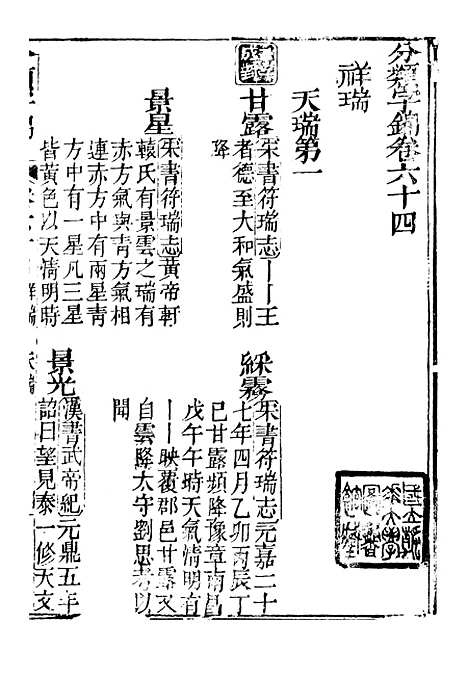 分類字錦卷六十四
祥瑞
天瑞第一
甘露
宋書符瑞志丨丨王
者德至大和氣盛則
降
綵雲
宋書符瑞志元嘉二十
七年四月乙卯丙辰丁
巳甘露頻降豫章南昌
戊午午時天氣清明有
丨丨映覆郡邑甘露又
自雲降太守劉思考以
聞
景星
宋書符瑞志黃帝軒
轅氏有景雲之瑞有
赤方氣與青方氣相
連赤方中有兩星青
方中有一星凡三星
皆黃色以天清明時
景光
漢書武帝紀元鼎五年
詔曰望見泰一修天文